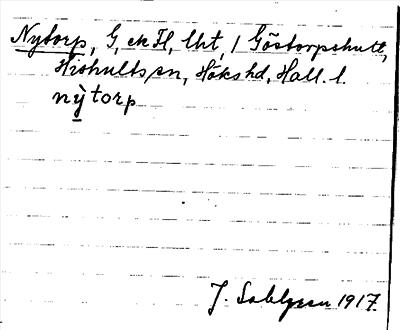 Nytorp, G, en Hl, lht, / Göstorpshult,
Hishults sn, Höks hd, Hall. l.
nỳ̱torp
J. Sahlgren 1917.